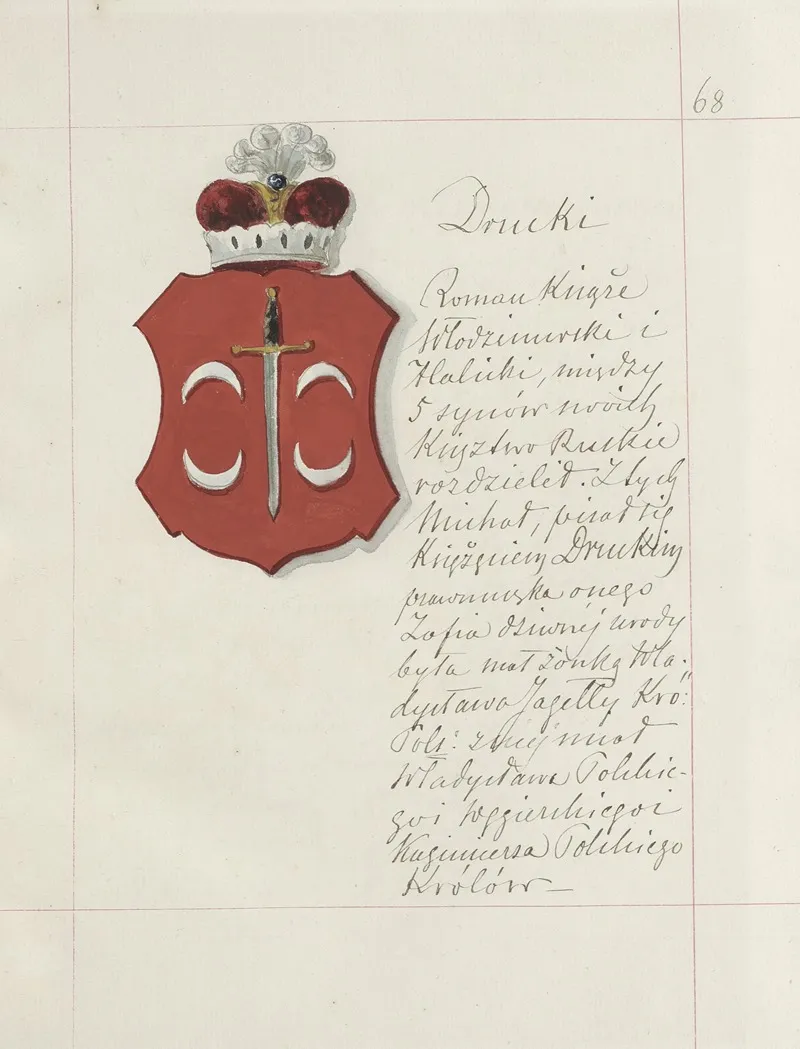 68
Drucki
Roman Książe
Włodzimirski i
Halicki, między
5 synów swoich
Księztwo Ruskie
rozdzielił. Z tych
Michał, pisał się
Księżęciem Druckim
prawnuczka onego
Zofia dziwnéj urody
była małżonką Wła-
dysława Jagełły Kró:
Pols: z niéj miał
Władysława Polskie-
go i Węgierskiego i
Kazimierza Polskiego
Królów —